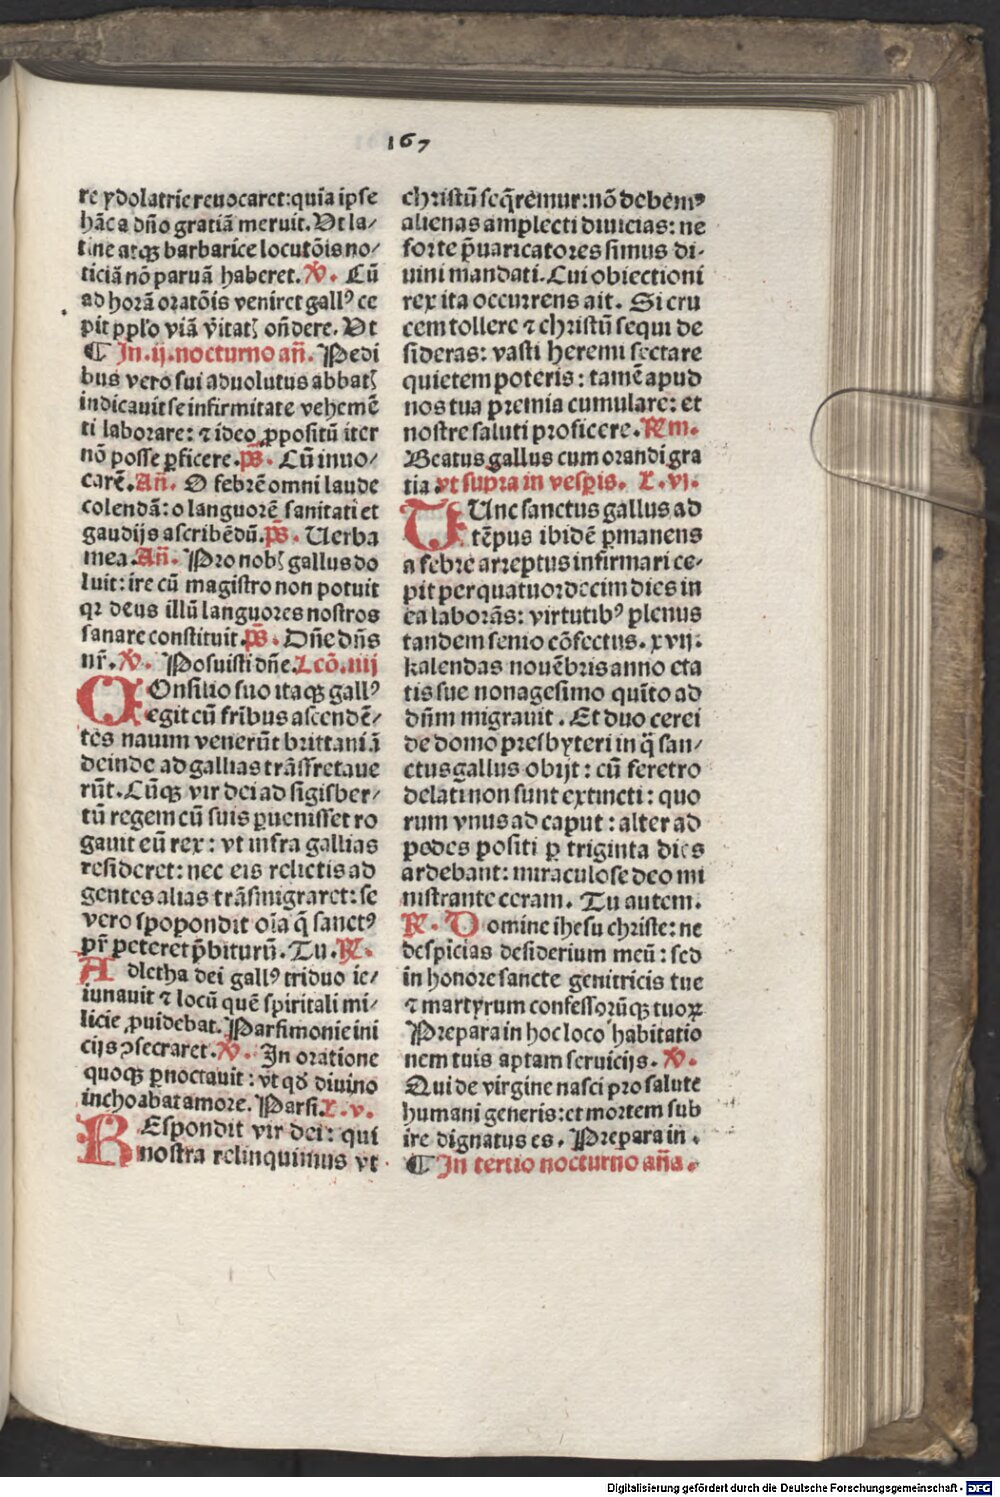 167
re ydolatrie reuocaret: quia ipse
hāc a dño gratiā meruit. Vt la/
tine atqꝫ barbarice locutōis no/
ticiā nō paruā haberet. ℣. Cū
ad horā oratōis veniret gallꝰ ce
pit pplo viā v̄itatꝭ oñdere. Vt
¶ In .ij. nocturno añ. Pedi
bus vero sui aduolutus abbatꝭ
indicauit se infirmitate vehemē
ti laborare: ⁊ ideo ꝓpositū iter
nō posse ꝑficere. p̄s. Cū inuo/
carē. Añ. O febrē omni laude
colendā: o languorē sanitati et
gaudijs ascribēdū. p̄s. Uerba
mea. Añ. Pro nobꝭ gallus do
luit: ire cū magistro non potuit
qꝛ deus illū languores nostros
sanare constituit. p̄s. Dñe dñs
nr̄. ℣. Posuisti dñe. Lcō. iiij
COnsilio suo itaqꝫ gallꝰ
egit cū fr̄ibus ascendē/
tes nauim venerūt brittaniā
deinde ad gallias trāsfretaue
rūt. Cūqꝫ vir dei ad sigisber/
tū regem cū suis ꝑuenisset ro
gauit eū rex: vt infra gallias
resideret: nec eis relictis ad
gentes alias trāsmigraret: se
vero spopondit oīa q̄ sanctꝰ
pr̄ peteret p̄biturū. Tu. ℟.
Adletha dei gallꝰ triduo ie/
iunauit ⁊ locū quē spiritali mi/
licie ꝓuidebat. Parsimonie ini
cijs ꝯsecraret. ℣. In oratione
quoqꝫ ꝑnoctauit: vt qd̓ diuino
inchoabat amore. Parsi. L. v.
REspondit vir dei: qui
nostra relinquimus vt
christū seq̄remur: nō debemꝰ
alienas amplecti diuicias: ne
forte p̄uaricatores simus di-
uini mandati. Cui obiectioni
rex ita occurrens ait. Si cru
cem tollere ⁊ christū sequi de
sideras: vasti heremi sectare
quietem poteris: tamē apud
nos tua premia cumulare: et
nostre saluti proficere. ℟m.
Beatus gallus cum orandi gra
tia vt supra in vesꝑis. L. vj.
TUnc sanctus gallus ad
tēpus ibidē ꝑmanens
a febre arreptus infirmari ce-
pit per quatuordecim dies in
ea laborās: virtutibꝰ plenus
tandem senio cōfectus. xvij.
kalendas nouēbris anno eta
tis sue nonagesimo quīto ad
dñm migrauit. Et duo cerei
de domo presbyteri in q̄ san/
ctus gallus obijt: cū feretro
delati non sunt extincti: quo
rum vnus ad caput: alter ad
pedes positi ꝑ triginta dies
ardebant: miraculose deo mi
nistrante ceram. Tu autem.
℟. Domine ihesu christe: ne
despicias desiderium meū: sed
in honore sancte genitricis tue
⁊ martyrum confessorūqꝫ tuoꝝ
Prepara in hoc loco habitatio
nem tuis aptam seruicijs. ℣.
Qui de virgine nasci pro salute
humani generis: et mortem sub
ire dignatus es. Prepara in.
¶ In tertio nocturno aña.
Digitalisierung gefördert durch die Deutsche Forschungsgemeinschaft - DFG